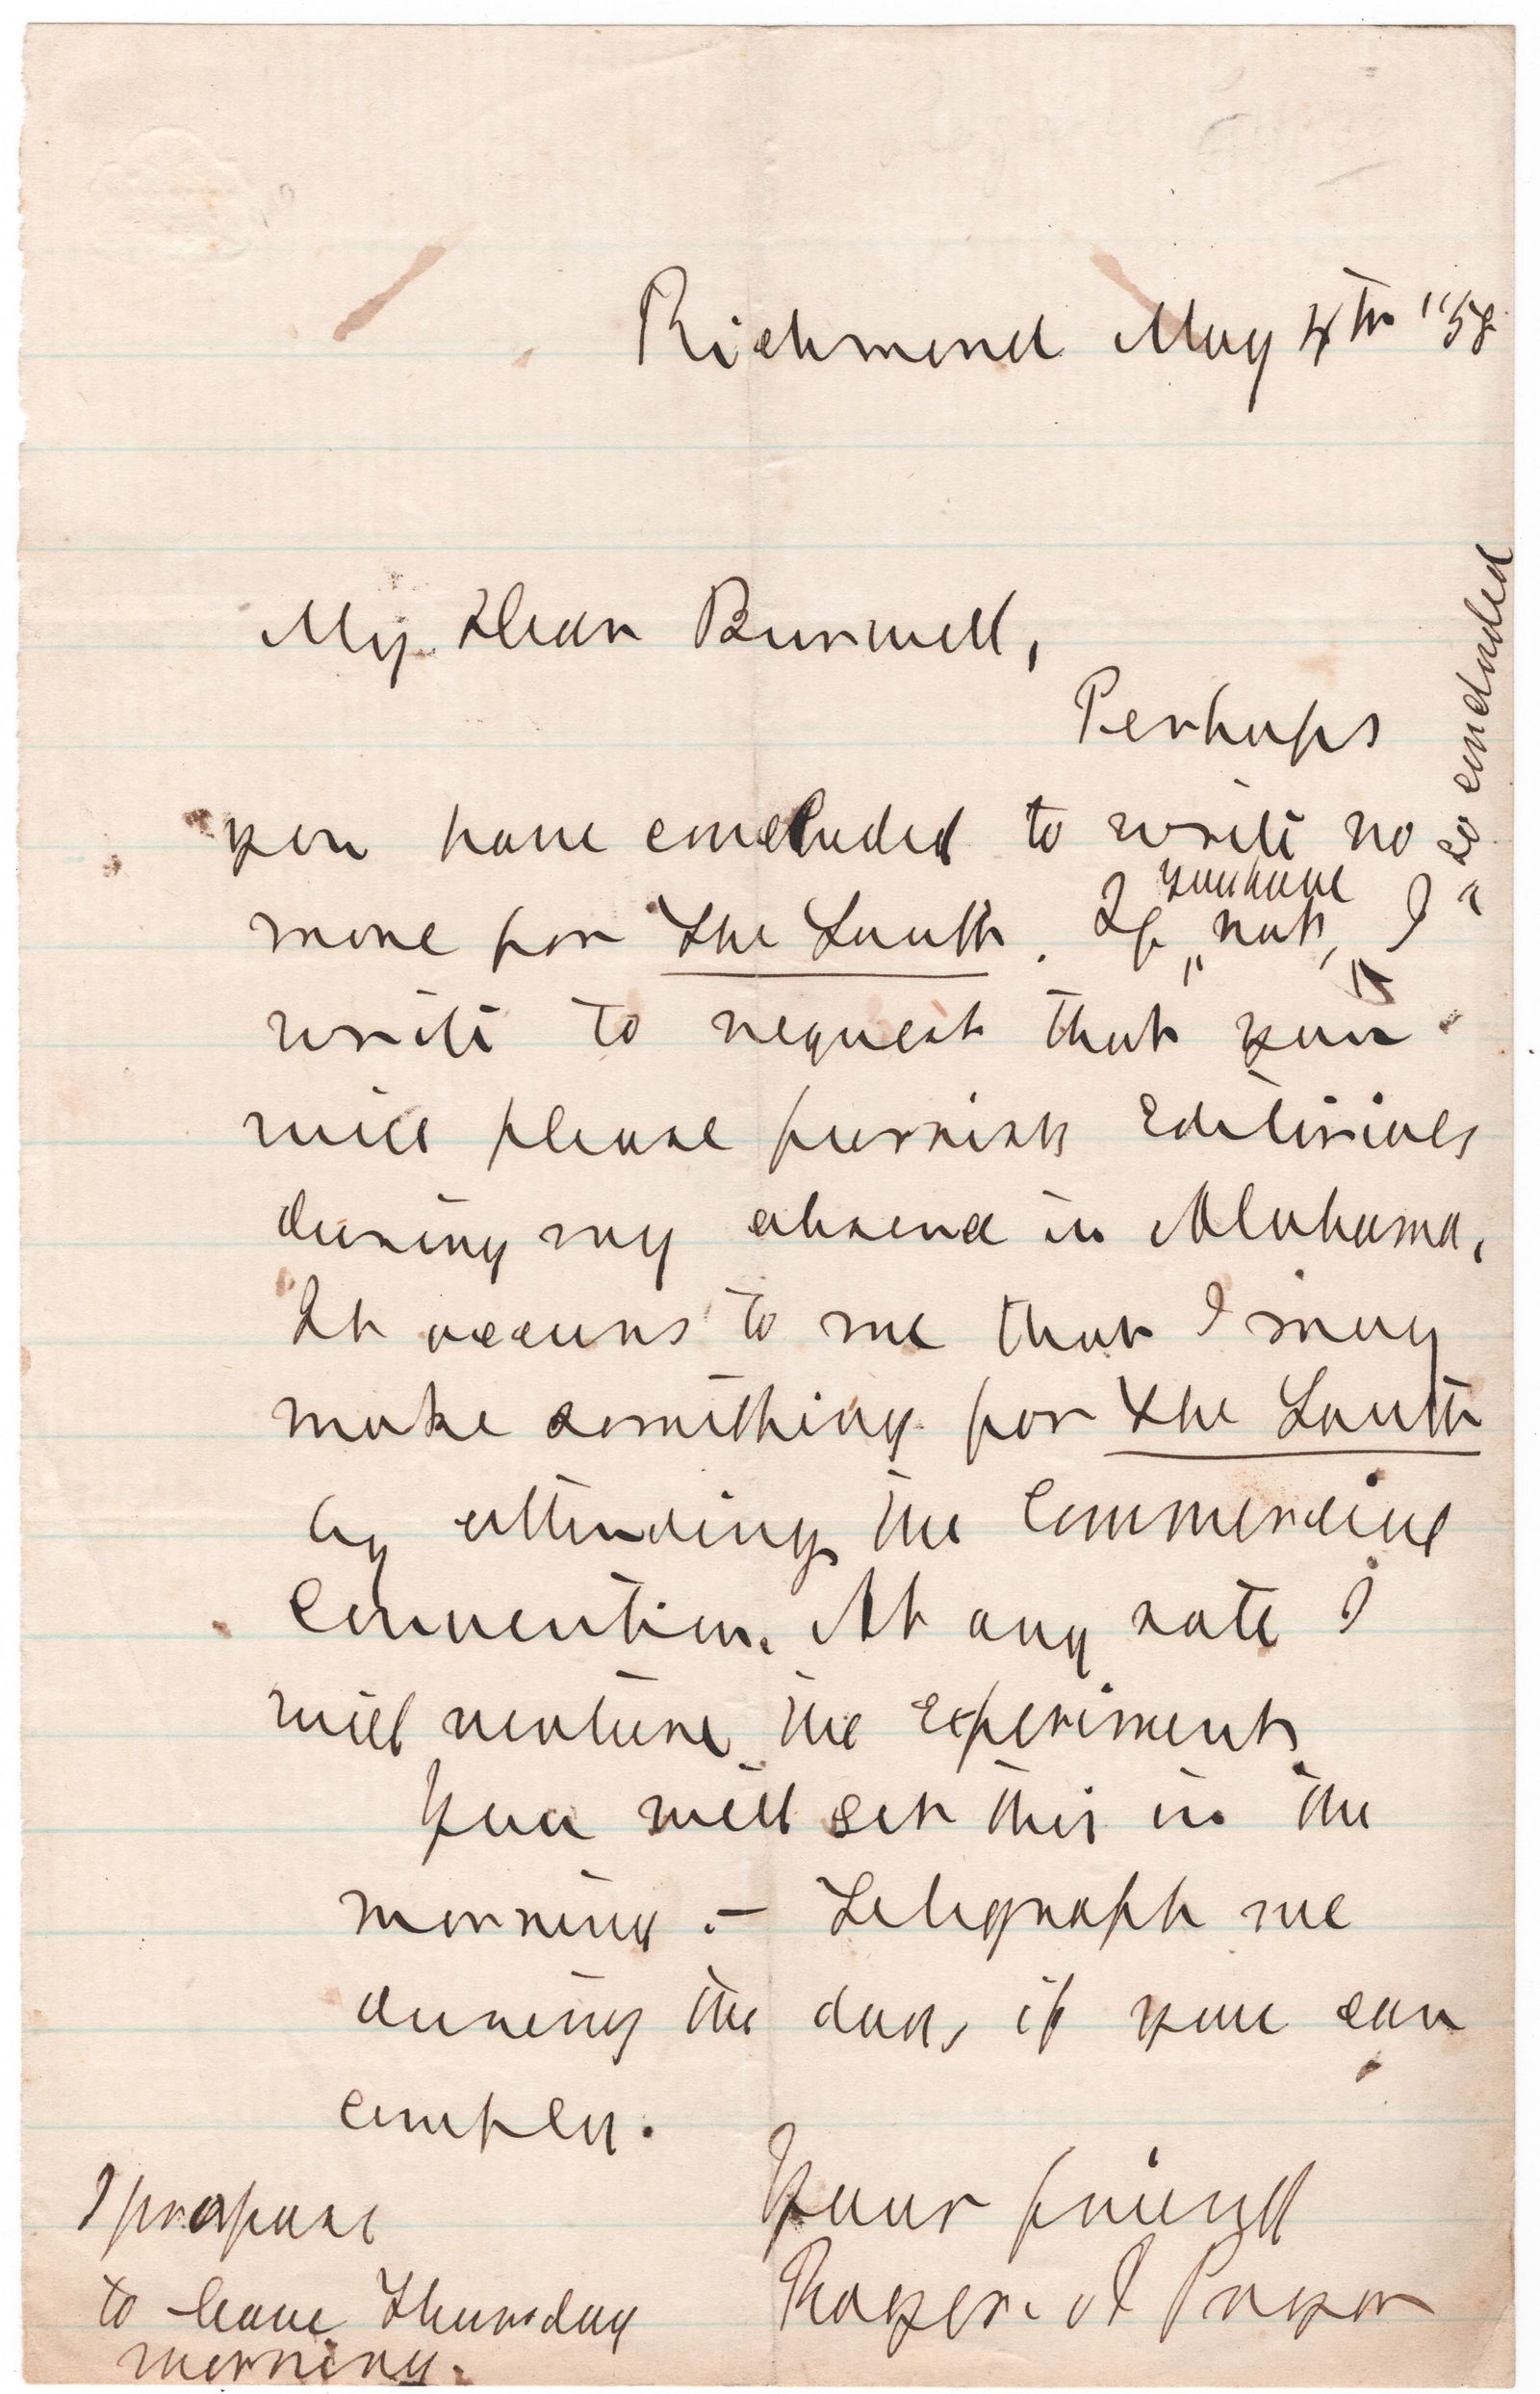 Richmond May 4th "58
My Dear Burwell,
Perhaps
you have concluded to write no
more for The South. If you have not, so concluded I
write to request that you
will please furnish Editorials
during my absence in Alabama.
It occurs to me that I may
make something for The South
by attending the Commercial
Convention. At any rate I
will venture the Experiment.
You will get this in the
morning. – Telegraph me
during the day, if you can
comply.
Your friend
Roger. A Pryor
I propose
to leave Thursday
morning.